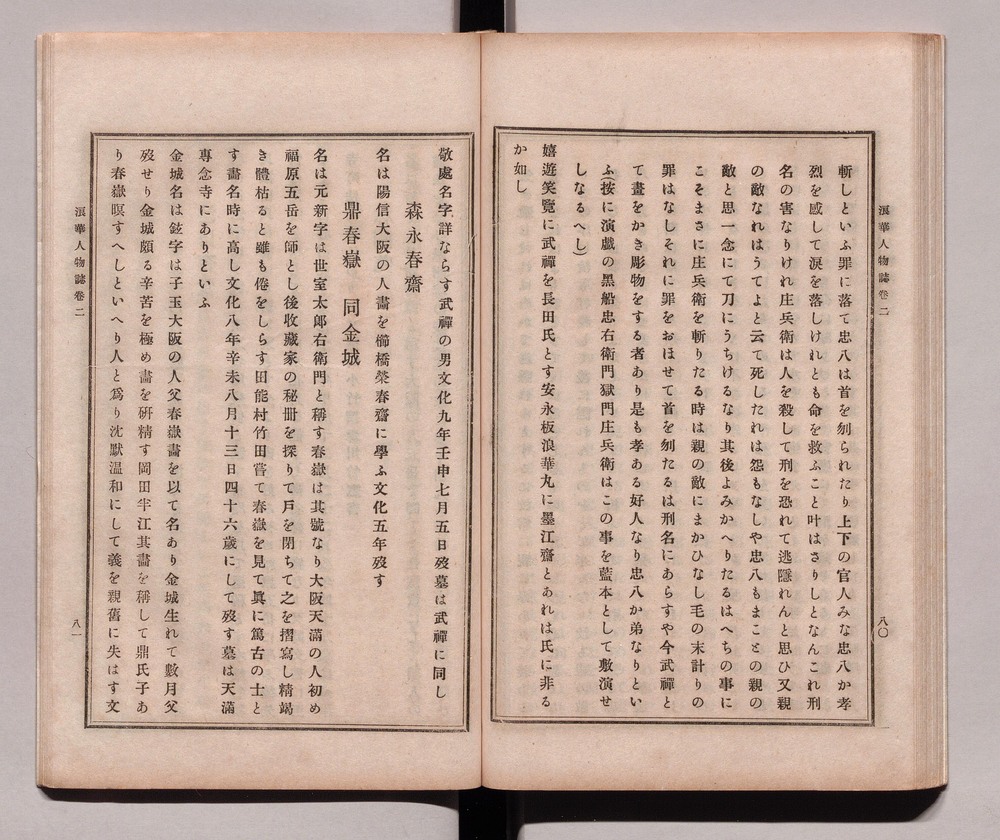 斬しといふ罪に落て忠八は首を刎られたり上下の官人みな忠八か孝
烈を感して涙を落しけれとも命を救ふこと叶はさりしとなんこれ刑
名の害なりけれ庄兵衛は人を殺して刑を恐れて逃隱れんと思ひ又親
の敵なれはうてよと云て死したれは怨もなしや忠八もまことの親の
敵と思一念にて刀にうちけるなり其後よみかへりたるはへちの事に
こそまさに庄兵衛を斬りたる時は親の敵にまかひなし毛の末計りの
罪はなしそれに罪をおほせて首を刎たるは刑名にあらすや今武禪と
て畫をかき彫物をする者あり是も孝ある好人なり忠八か弟なりとい
ふ(按に演戯の黒船忠右衛門獄門庄兵衛はこの事を藍本として敷演せ
しなるへし)
嬉遊笑覽に武禪を長田氏とす安永板浪華丸に墨江齋とあれは氏に非る
か如し
浪華人物誌卷二
八〇
敬處名字詳ならす武禪の男文化九年壬申七月五日歿墓は武禪に同し
森永春齋
名は陽信大阪の人畫を櫛橋榮春齋に學ふ文化五年歿す
鼎春嶽 同金城
名は元新字は世室太郎右衛門と稱す春嶽は其號なり大阪天滿の人初め
福原五岳を師とし後收藏家の秘冊を探りて戸を閉ちて之を摺寫し精竭
き體枯ると雖も倦をしらす田能村竹田嘗て春嶽を見て眞に篤古の士と
す畫名時に高し文化八年辛未八月十三日四十六歳にして歿す墓は天滿
專念寺にありといふ
金城名は鉉字は子玉大阪の人父春嶽畫を以て名あり金城生れて數月父
歿せり金城頗る辛苦を極め畫を研精す岡田半江其畫を稱して鼎氏子あ
り春嶽瞑すへしといへり人と爲り沈默温和にして義を親舊に失はす文
浪華人物誌卷二
八一